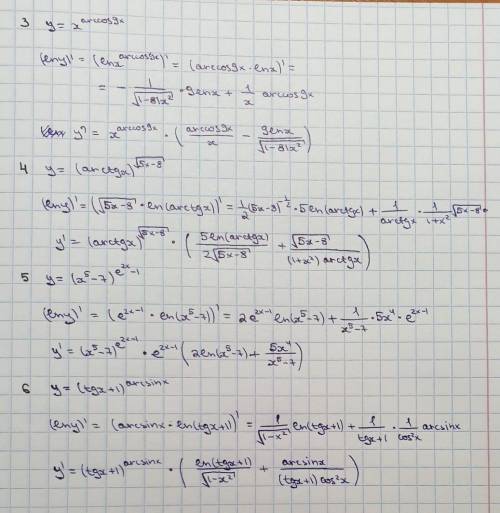 3 y = x^arccos9x
(lny)' = (lnx^arccos9x)' = (arccos9x · lnx)' =
= - 1/√(1-81x²) · 9lnx + 1/x arccos9x
y' = x^arccos9x · (arccos9x/x - 9lnx/√(1-81x²))
4 y = (arctgx)^√(5x-8)
(lny)' = (√(5x-8) · ln(arctgx))' = 1/2 (5x-8)^(-1/2) · 5ln(arctgx) + 1/arctgx · 1/(1+x²) √(5x-8) ·
y' = (arctgx)^√(5x-8) · (5ln(arctgx)/(2√(5x-8)) + √(5x-8)/((1+x²)arctgx))
5 y = (x⁵-7)^e^(2x-1)
(lny)' = (e^(2x-1) · ln(x⁵-7))' = 2e^(2x-1) ln(x⁵-7) + 1/(x⁵-7) · 5x⁴ · e^(2x-1)
y' = (x⁵-7)^e^(2x-1) · e^(2x-1) (2ln(x⁵-7) + 5x⁴/(x⁵-7))
6 y = (tgx+1)^arcsinx
(lny)' = (arcsinx · ln(tgx+1))' = 1/√(1-x²) ln(tgx+1) + 1/(tgx+1) · 1/cos²x arcsinx
y' = (tgx+1)^arcsinx · (ln(tgx+1)/√(1-x²) + arcsinx/((tgx+1)cos²x))